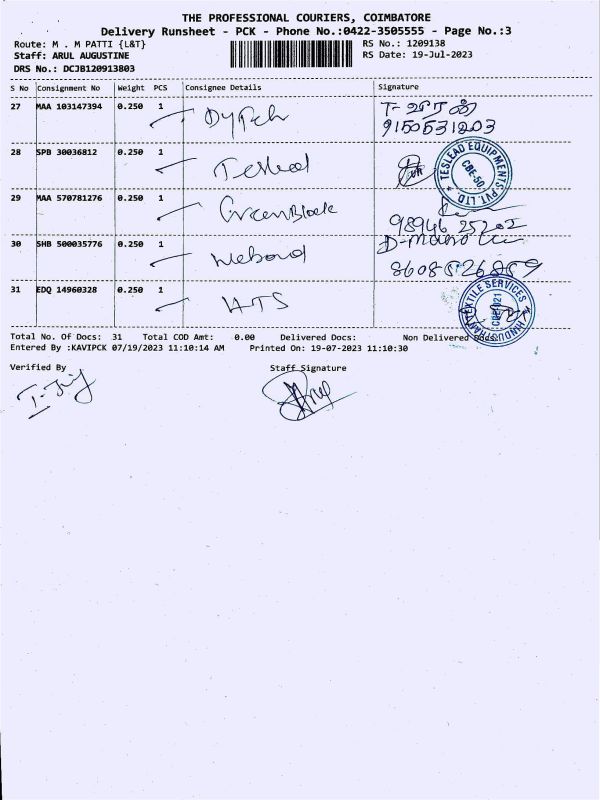 THE PROFESSIONAL COURIERS, COIMBATORE
Delivery Runsheet - PCK - Phone No.:0422-3505555 - Page No.:3
Route: M . M PATTI {L&T} RS No.: 1209138
Staff: ARUL AUGUSTINE RS Date: 19-Jul-2023
DRS No.: DCJB120913803
S No Consignment No Weight PCS Consignee Details Signature
27 MAA 103147394 0.250 1
9150531203
28 SPB 30036812 0.250 1 Teslead
TESLEAD EQUIPMENTS PVT. LTD. CBE-50
29 MAA 570781276 0.250 1 GreenBlock
98946 25202
30 SHB 500035776 0.250 1 Webond D-Mano
31 EDQ 14960328 0.250 1 HTS
HINDUSTHAN TEXTILE SERVICES
Total No. Of Docs: 31 Total COD Amt: 0.00 Delivered Docs: Non Delivered Docs:
Entered By :KAVIPCK 07/19/2023 11:10:14 AM Printed On: 19-07-2023 11:10:30
Verified By Staff Signature